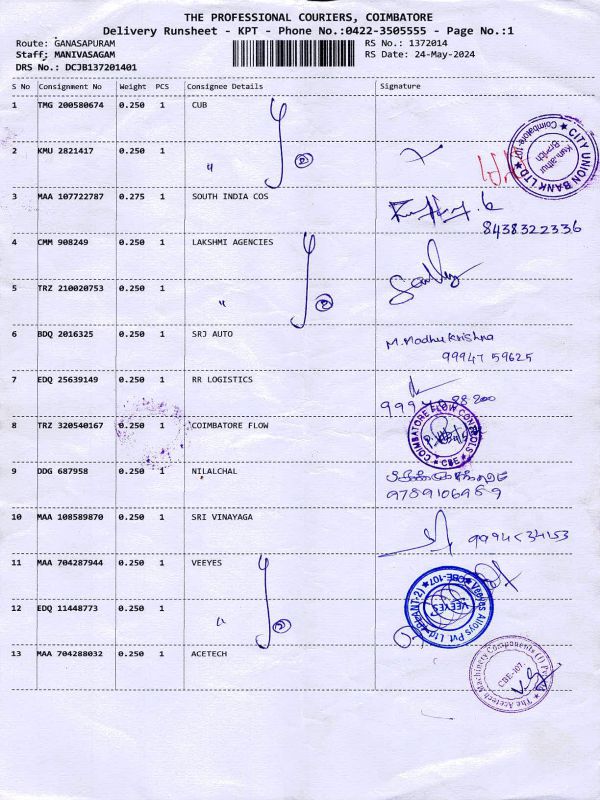 THE PROFESSIONAL COURIERS, COIMBATORE
Delivery Runsheet - KPT - Phone No.:0422-3505555 - Page No.:1
Route: GANASAPURAM
RS No.: 1372014
Staff: MANIVASAGAM
RS Date: 24-May-2024
DRS No.: DCJB137201401
S No Consignment No Weight PCS Consignee Details Signature
1 TMG 200580674 0.250 1 CUB
2 KMU 2821417 0.250 1 " 2
CITY UNION BANK LTD. Coimbatore-107 Branch
3 MAA 107722787 0.275 1 SOUTH INDIA COS
8438322336
4 CMM 908249 0.250 1 LAKSHMI AGENCIES
5 TRZ 210020753 0.250 1 " 2
6 BDQ 2016325 0.250 1 SRJ AUTO M. Madhu Krishna
99947 59625
7 EDQ 25639149 0.250 1 RR LOGISTICS
8 TRZ 320540167 0.250 1 COIMBATORE FLOW
COIMBATORE FLOW CONTROLS CBE
9 DDG 687958 0.250 1 NILALCHAL
9789106989
10 MAA 108589870 0.250 1 SRI VINAYAGA
11 MAA 704287944 0.250 1 VEEYES
12 EDQ 11448773 0.250 1 " 2
Veeyes Alloys Pvt Ltd CBE-107 VEEYES
13 MAA 704288032 0.250 1 ACETECH
The Acetech Machinery Components (I) CBE-107.